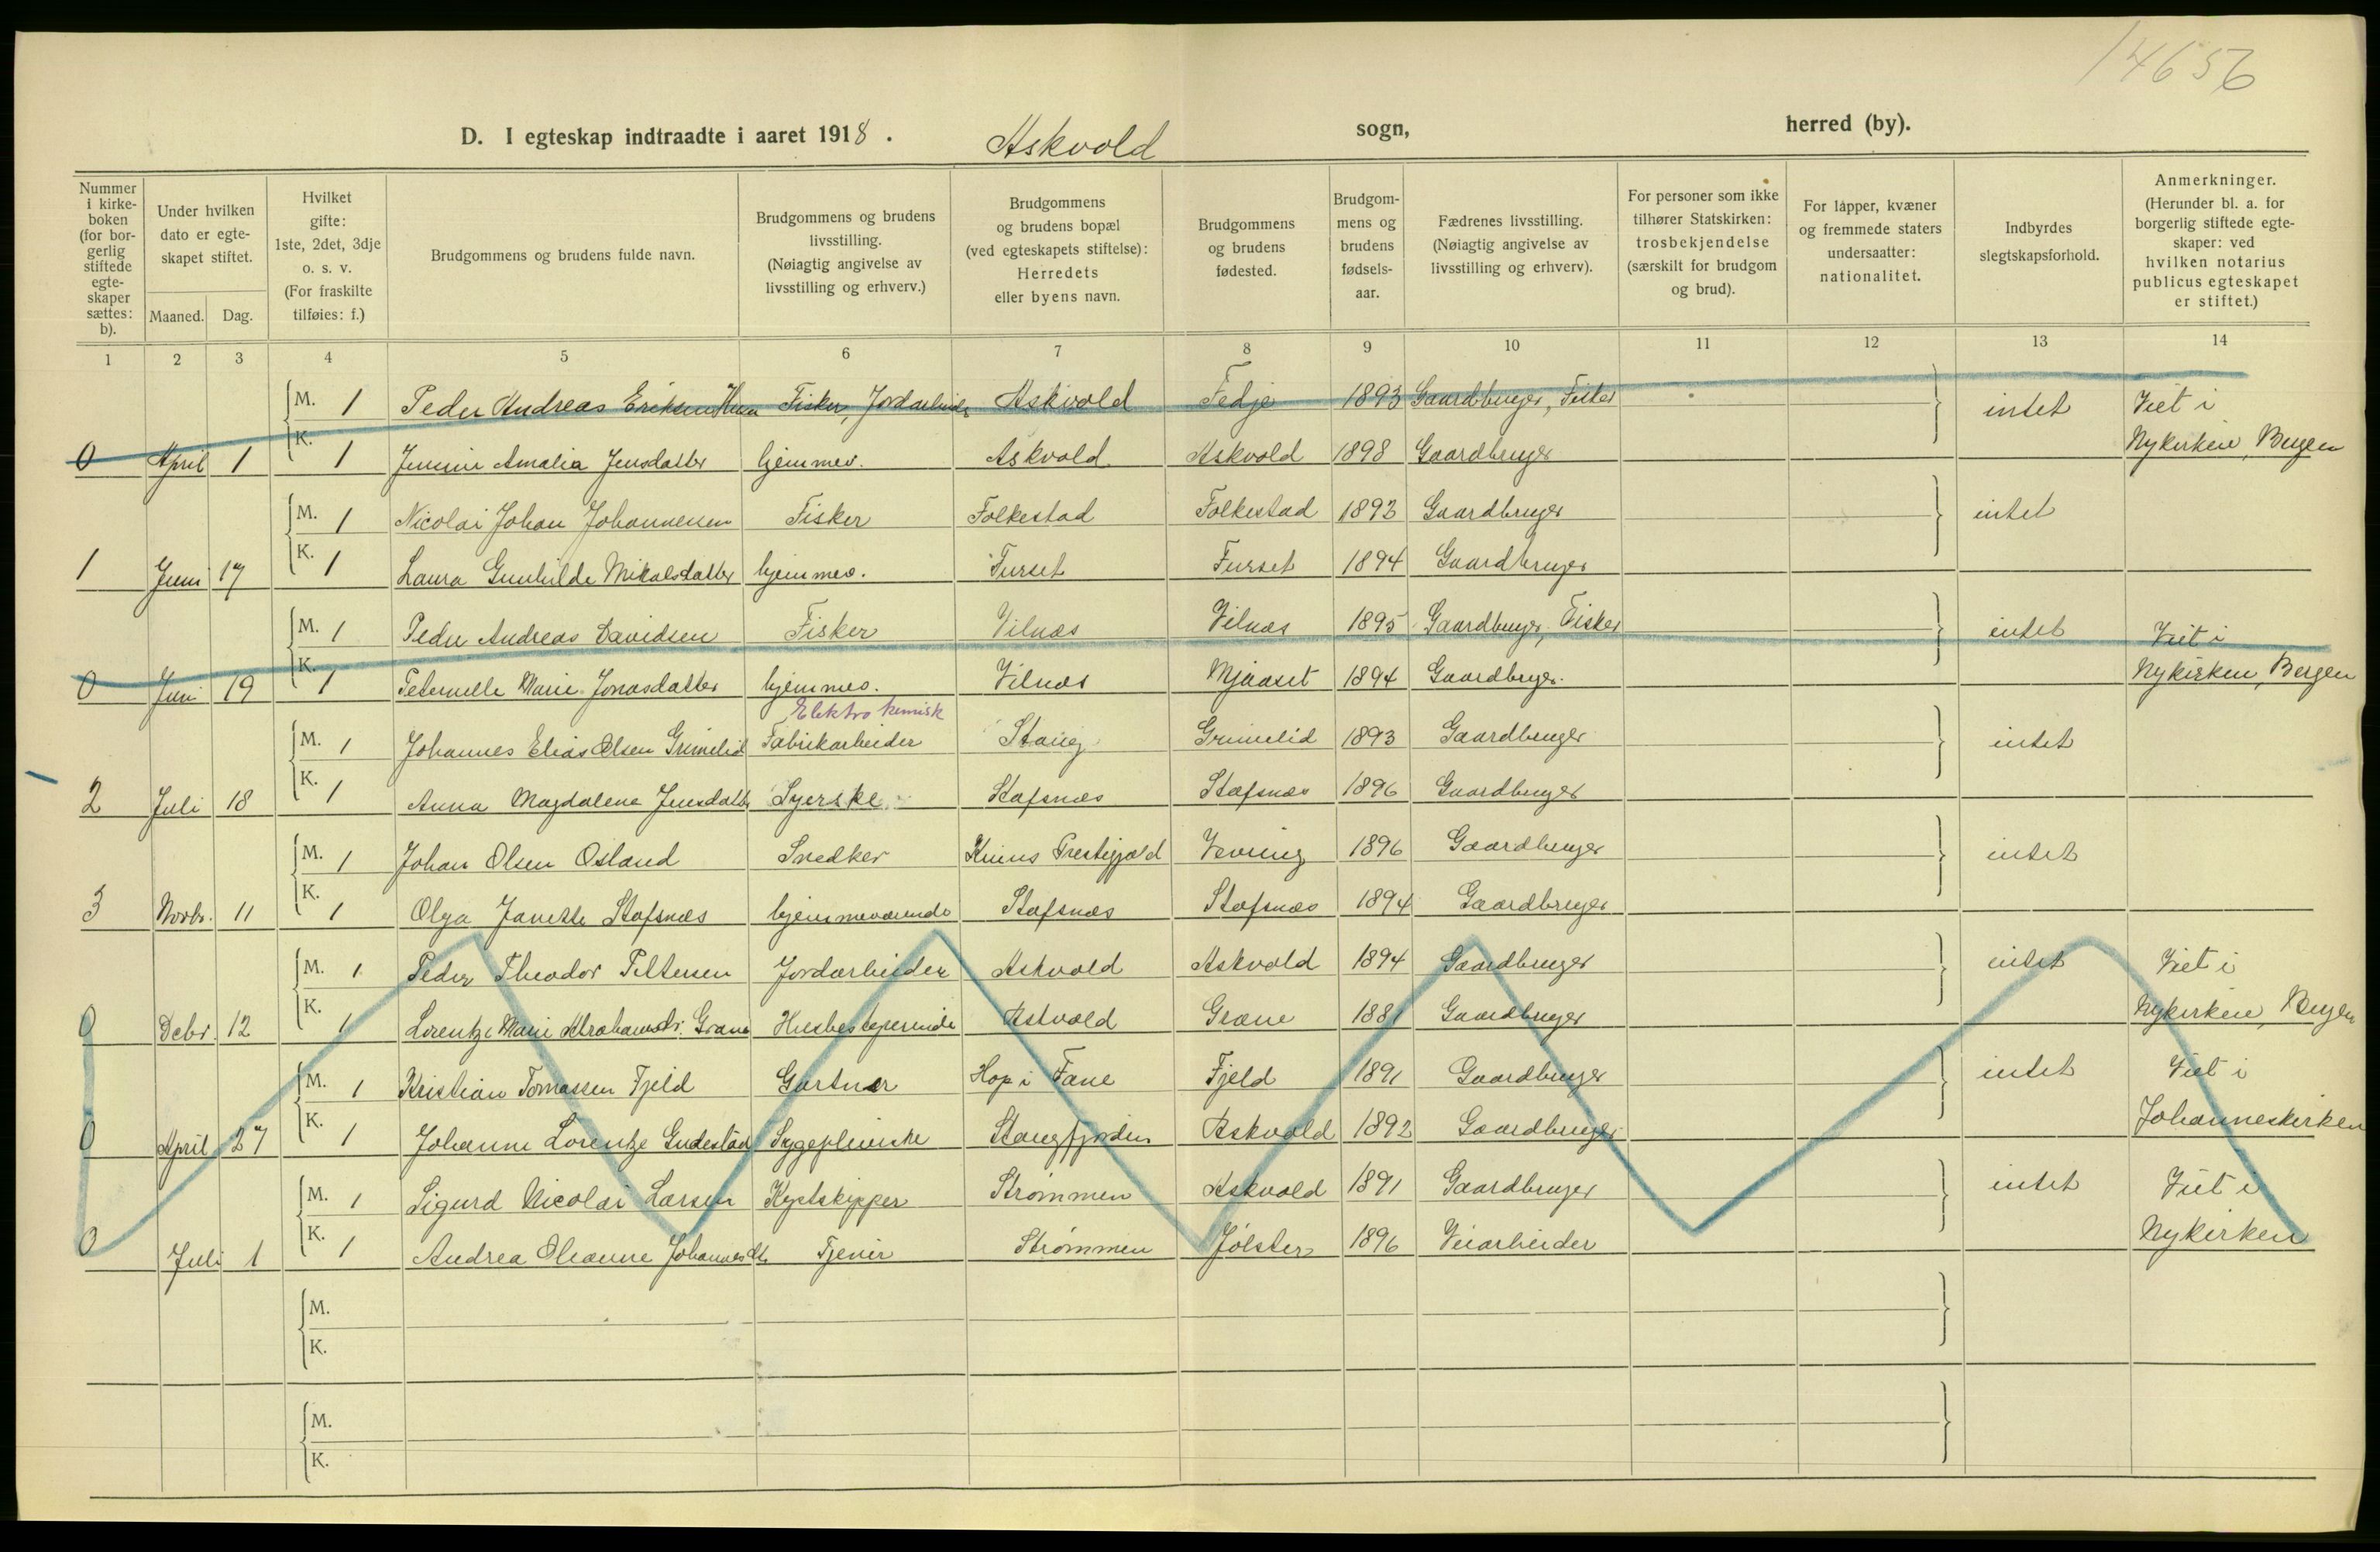 14656
D. I egteskap indtraadte i aaret 1918. Askvold sogn, herred (by).
Nummer i kirkeboken (for borgerlig stiftede egteskaper sættes: b).
Under hvilken dato er egteskapet stiftet.
Maaned. Dag.
Hvilket gifte: 1ste, 2det, 3dje o. s. v. (For fraskilte tilføies: f.)
Brudgommens og brudens fulde navn.
Brudgommens og brudens livsstilling. (Nøiagtig angivelse av livsstilling og erhverv.)
Brudgommens og brudens bopæl (ved egteskapets stiftelse): Herredets eller byens navn.
Brudgommens og brudens fødested.
Brudgommens og brudens fødselsaar.
Fædrenes livsstilling. (Nøiagtig angivelse av livsstilling og erhverv).
For personer som ikke tilhører Statskirken: trosbekjendelse (særskilt for brudgom og brud).
For lapper, kvæner og fremmede staters undersaatter: nationalitet.
Indbyrdes slegtskapsforhold.
Anmerkninger. (Herunder bl. a. for borgerlig stiftede egteskaper: ved hvilken notarius publicus egteskapet er stiftet.)
1 2 3 4 5 6 7 8 9 10 11 12 13 14
M. 1 Peder Andreas Eriksen Fisker, Jordarbeider Askvold Fedje 1893 Gaardbruger, Fisker intet Viet i
0 April 1 K. 1 Jensine Amalia Jensdatter hjemmev. Askvold Askvold 1898 Gaardbruger Nykirken, Bergen
M. 1 Nicolai Johan Johannesen Fisker Folkestad Folkestad 1893 Gaardbruger intet
1 Juni 17 K. 1 Laura Gunhilde Mikalsdatter hjemmev. Furset Furset 1894 Gaardbruger
M. 1 Peder Andreas Davidsen Fisker Vilnæs Vilnæs 1895 Gaardbruger, Fisker intet Viet i
0 Juni 19 K. 1 Peternelle Marie Jonasdatter hjemmev. Vilnæs Mjaaset 1894 Gaardbruger. Nykirken, Bergen
Elektrokemisk
M. 1 Johannes Elias Olsen Grimelid Fabrikarbeider Stang Grimelid 1893 Gaardbruger intet
2 Juli 18 K. 1 Anna Magdalene Jensdatter Syerske Stafsnæs Stafsnæs 1896 Gaardbruger
M. 1 Johan Olsen Osland Snedker Kinns Prestegjæld Vevring 1896 Gaardbruger intet
3 Novbr. 11 K. 1 Olga Janette Stafsnæs hjemmeværende Stafsnæs Stafsnæs 1894 Gaardbruger
M. 1 Peder Theodor Pettersen Jordarbeider Askvold Askvold 1894 Gaardbruger intet Viet i
0 Debr. 12 K. 1 Lorentze Marie Abrahamsdr. Grane Husbestyrerinde Askvold Grane 1881 Gaardbruger Nykirken, Bergen
M. 1 Kristian Tomassen Fjeld Gartner Hop i Fane Fjeld 1891 Gaardbruger intet Viet i
0 April 27 K. 1 Johanne Lorentze Sygepleierske Stangfjorden Askvold 1892 Gaardbruger Johanneskirken
M. 1 Sigurd Nicolai Larsen Kystskipper Strømmen Askvold 1891 Gaardbruger intet Viet i
0 Juli 1 K. 1 Andrea Oleanne Tjener Strømmen Jølster 1896 Veiarbeider Nykirken
M.
K.
M.
K.